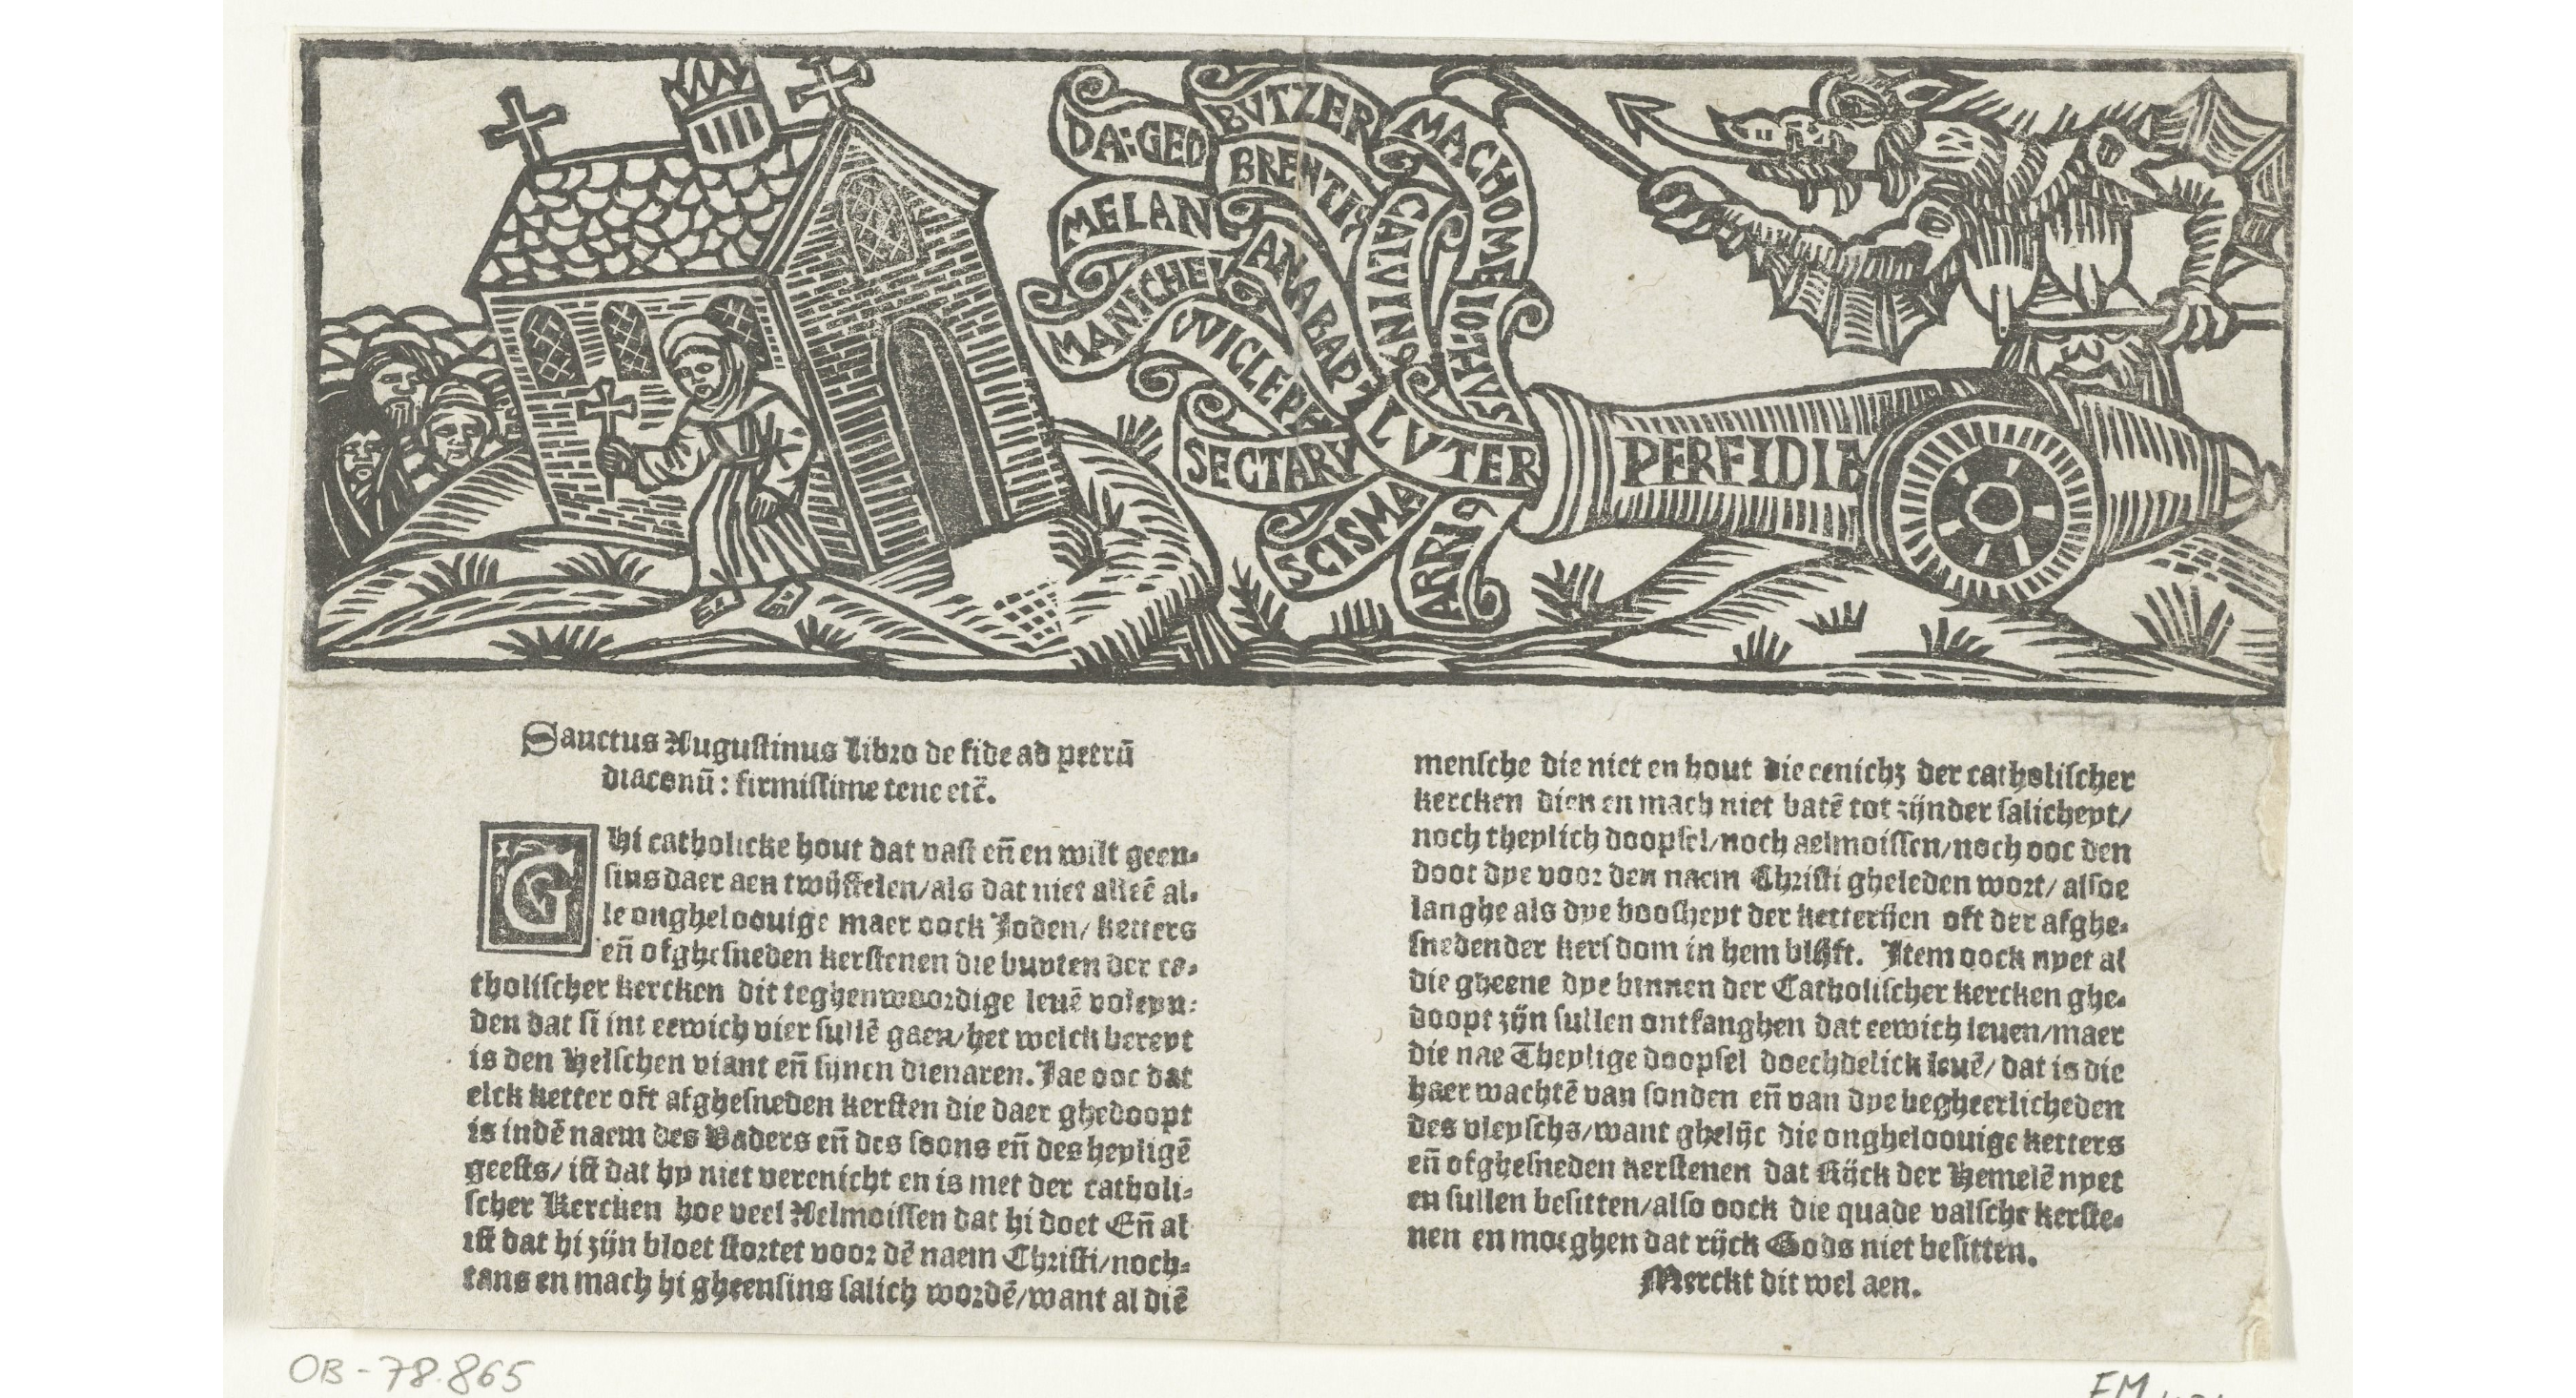 DA:GEO
BVTZER
MACHOME
BRENTIVS
MELAN
CALVINS
ANABAPT
IOTHVS
MANICHEI
WICLEPH
LVTER
SECTARY
SCISMA
ARRI9
PERFIDIE
Sanctus Augustinus libro de fide ad petrū
diaconū: firmissime tene etc̄.
GHi catholicke hout dat vast eñ en wilt geen-
sins daer aen twijffelen/als dat niet alleē al-
le ongheloouige maer oock Joden/ ketters
eñ ofghesneden kerstenen die buyten der ca-
tholischer kercken dit teghenwoordige leuē voleyn-
den dat si int eewich vier sullē gaen/het welck bereyt
is den Helschen viant eñ sijnen dienaren. Jae ooc dat
elck ketter oft afghesneden kersten die daer ghedoopt
is indē naem des Vaders eñ des soons eñ des heyligē
geests/ ist dat hy niet verenicht en is met der catholi-
scher Kercken hoe veel Aelmoissen dat hi doet Eñ al
ist dat hi zijn bloet stortet voor dē naem Christi/noch-
tans en mach hi gheensins salich wordē/want al diē
mensche die niet en hout die eenich₃ der catholischer
kercken dien en mach niet batē tot zijnder salicheyt/
noch theylich doopsel/noch aelmoissen/noch ooc den
doot dye voor den naem Christi gheleden wort/ alsoe
langhe als dye boosheyt der ketterijen oft der afghe-
snedender kersdom in hem blijft. Item oock nyet al
die gheene dye binnen der Catholischer kercken ghe-
doopt zijn sullen ontfanghen dat eewich leuen/maer
die nae Theylige doopsel doechdelick leuē/ dat is die
haer wachtē van sonden eñ van dye begheerlicheden
des vleyschs/want ghelijc die ongheloouige ketters
eñ ofghesneden kerstenen dat Rijck der Hemelē nyet
en sullen besitten/also oock die quade valsche kerste-
nen en moeghen dat rijck Gods niet besitten.
Merckt dit wel aen.
OB-78.865
FM